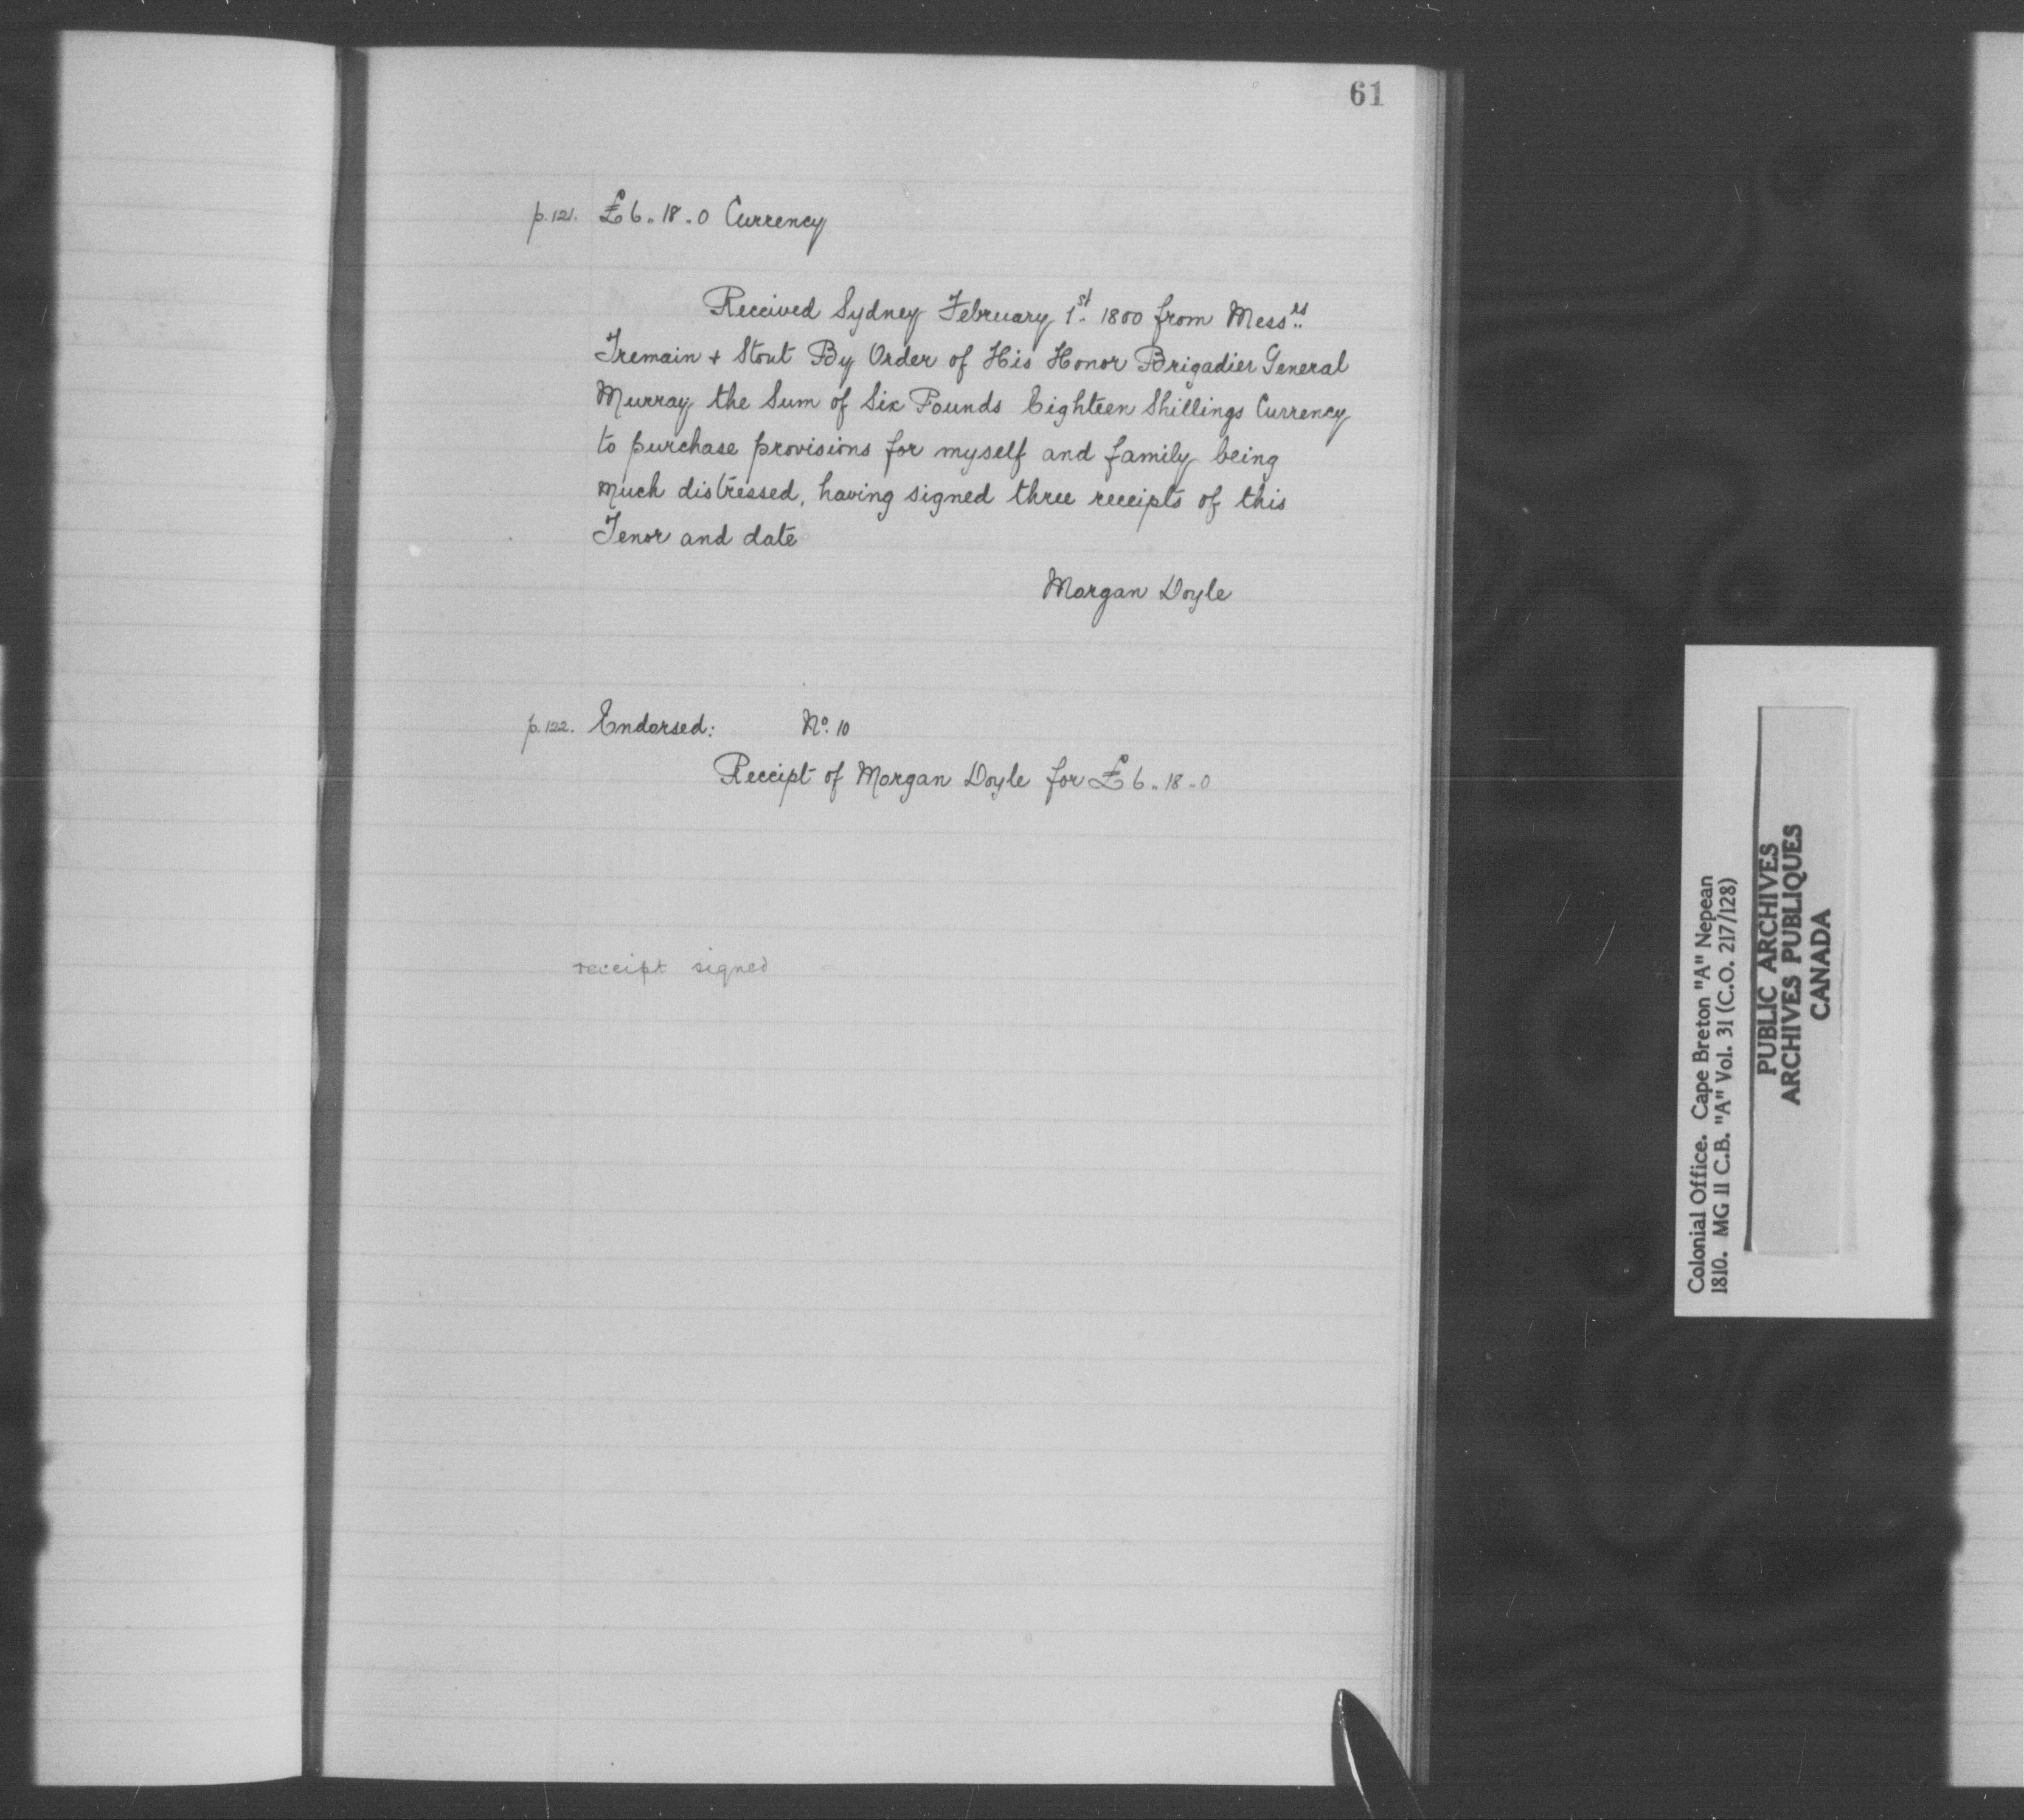 61
p.121. £6.. 18 . 0 Currency
Received Sydney February 1st. 1800 from Messrs..
Tremain + Stout By Order of His Honor Brigadier General
Murray the Sum of Six Pounds Eighteen Shillings Currency
to purchase provisions for myself and family being
much distressed, having signed three receipts of this
Tenor and date
Morgan Doyle
p.122. Endorsed: No. 10
Receipt of Morgan Doyle for £6.. 18 . 0
receipt signed
Colonial Office. Cape Breton "A" Nepean
1810. MG 11 C.B. "A" Vol. 31 (C.O. 217/128)
PUBLIC ARCHIVES
ARCHIVES PUBLIQUES
CANADA